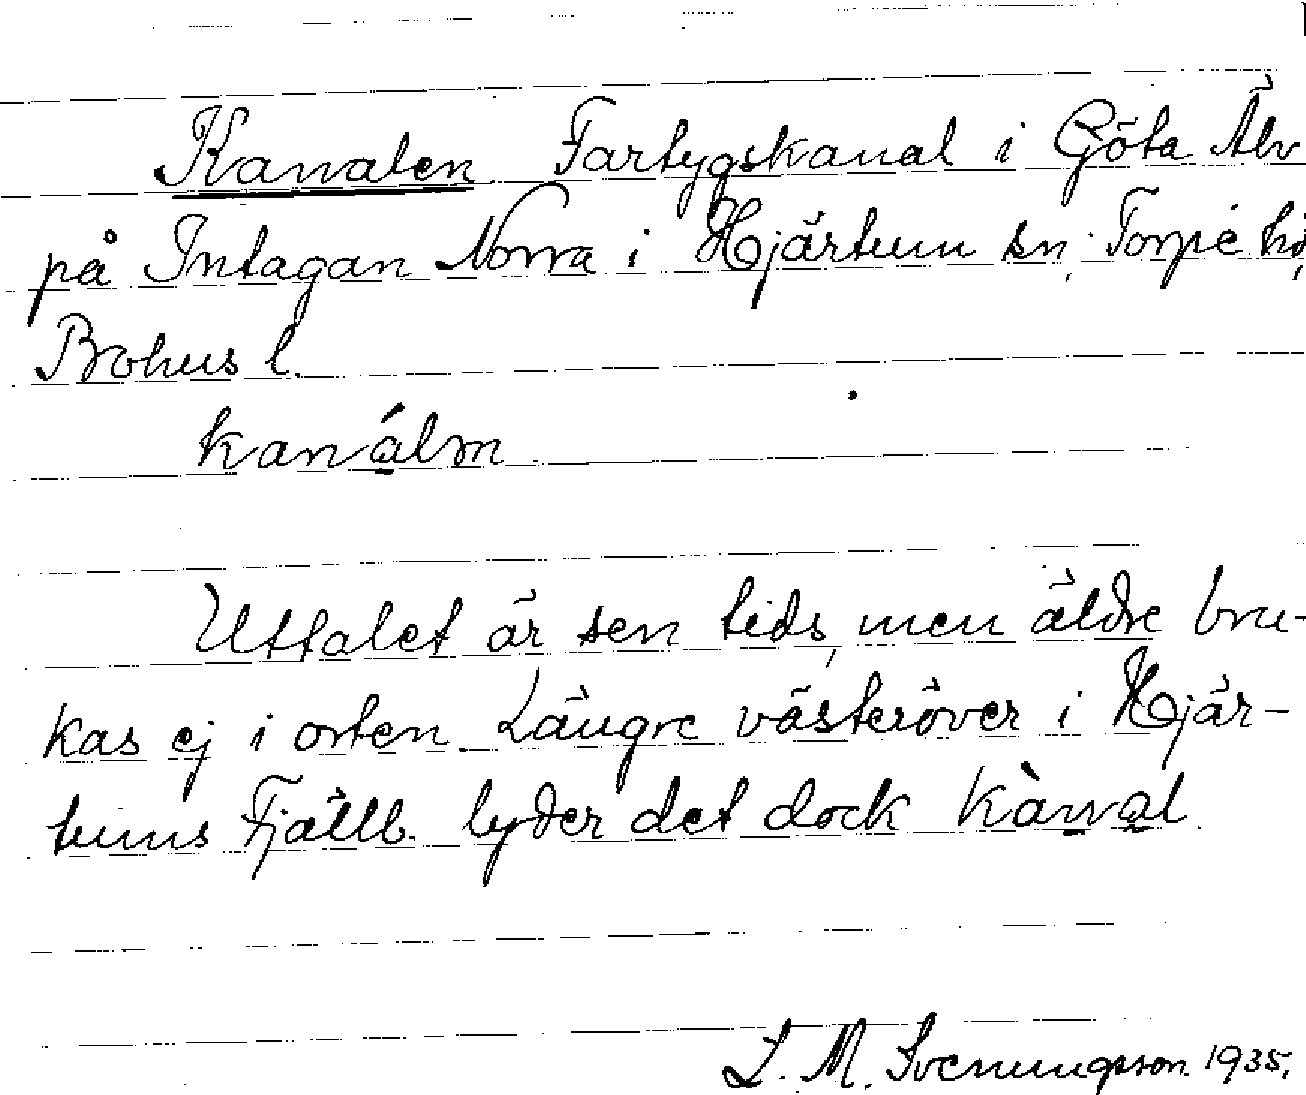 Kanalen Fartygskanal i Göta Älv
på Intagan Norra i Hjärtum sn, Torpe hd,
Bohus l.
kanálm
Uttalet är sen tids, men äldre bru-
kas ej i orten. Längre västeröver i Hjär-
tums Fjällb. lyder det dock kànnal
L. M. Svenungsson 1935.